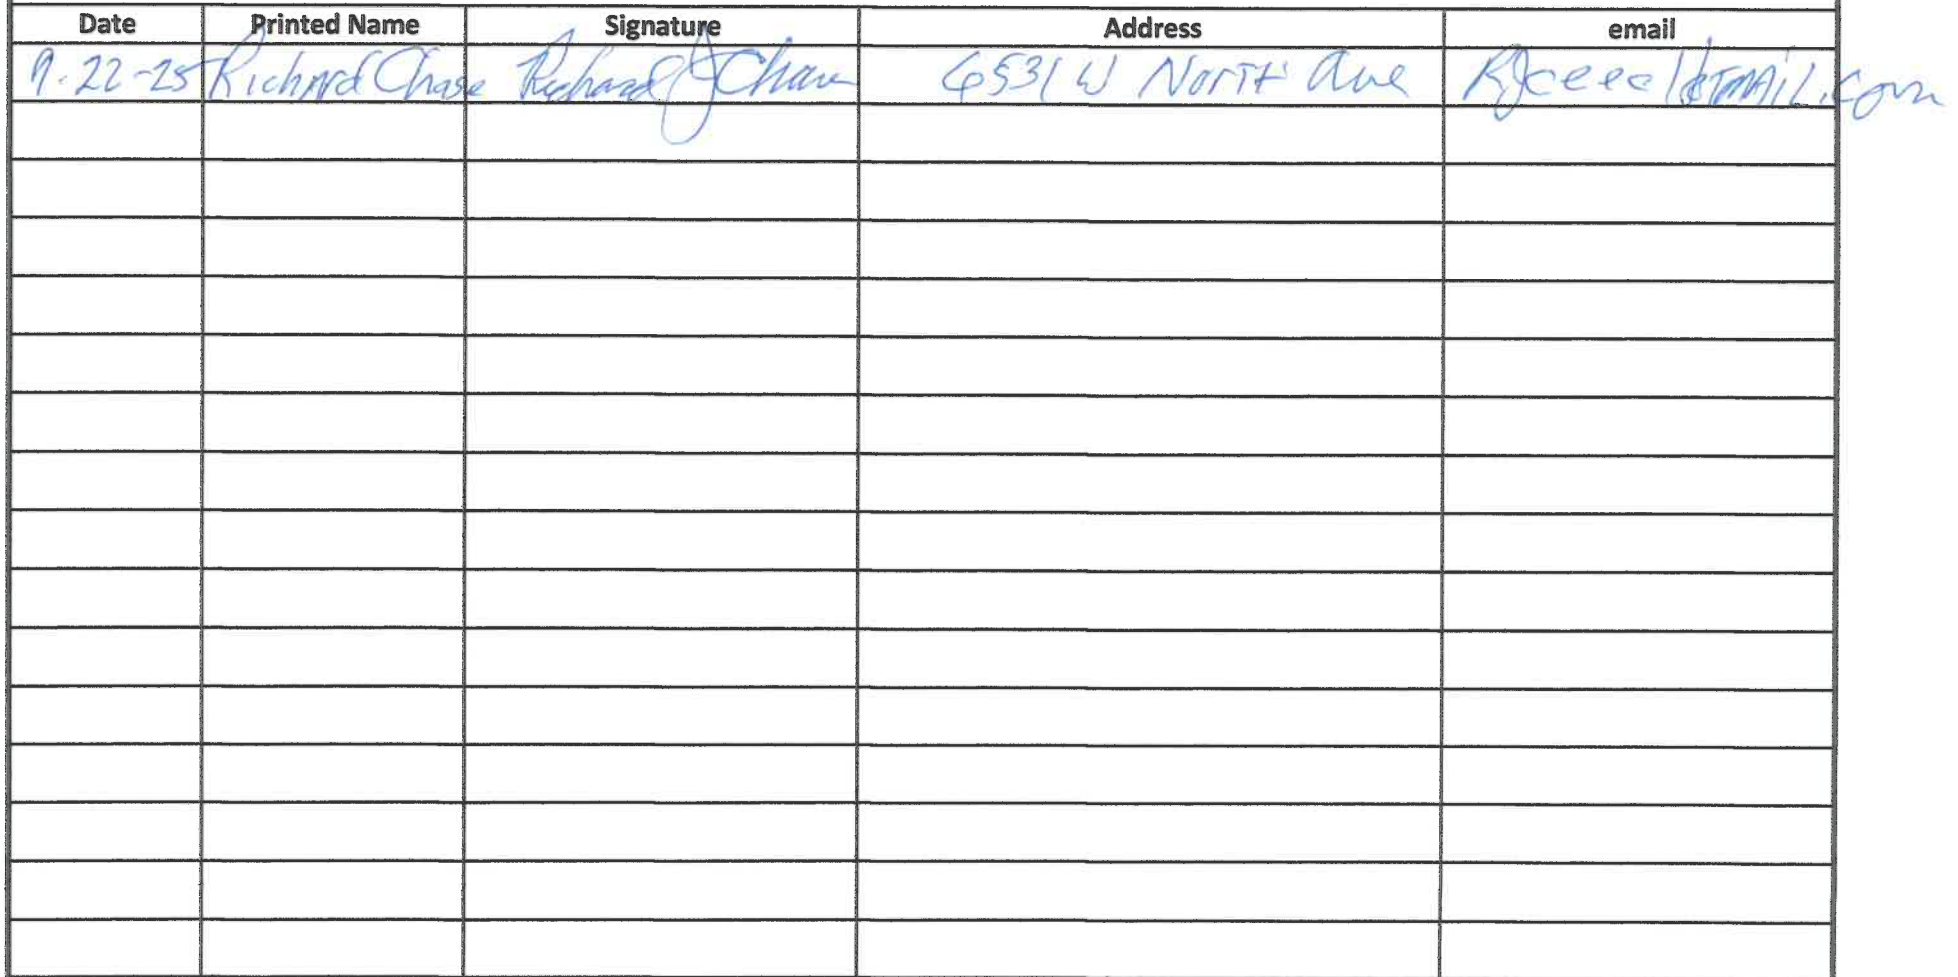 Date Printed Name Signature Address email
9-22-25 Richard Chase Richard J Chase 6531 W North Ave